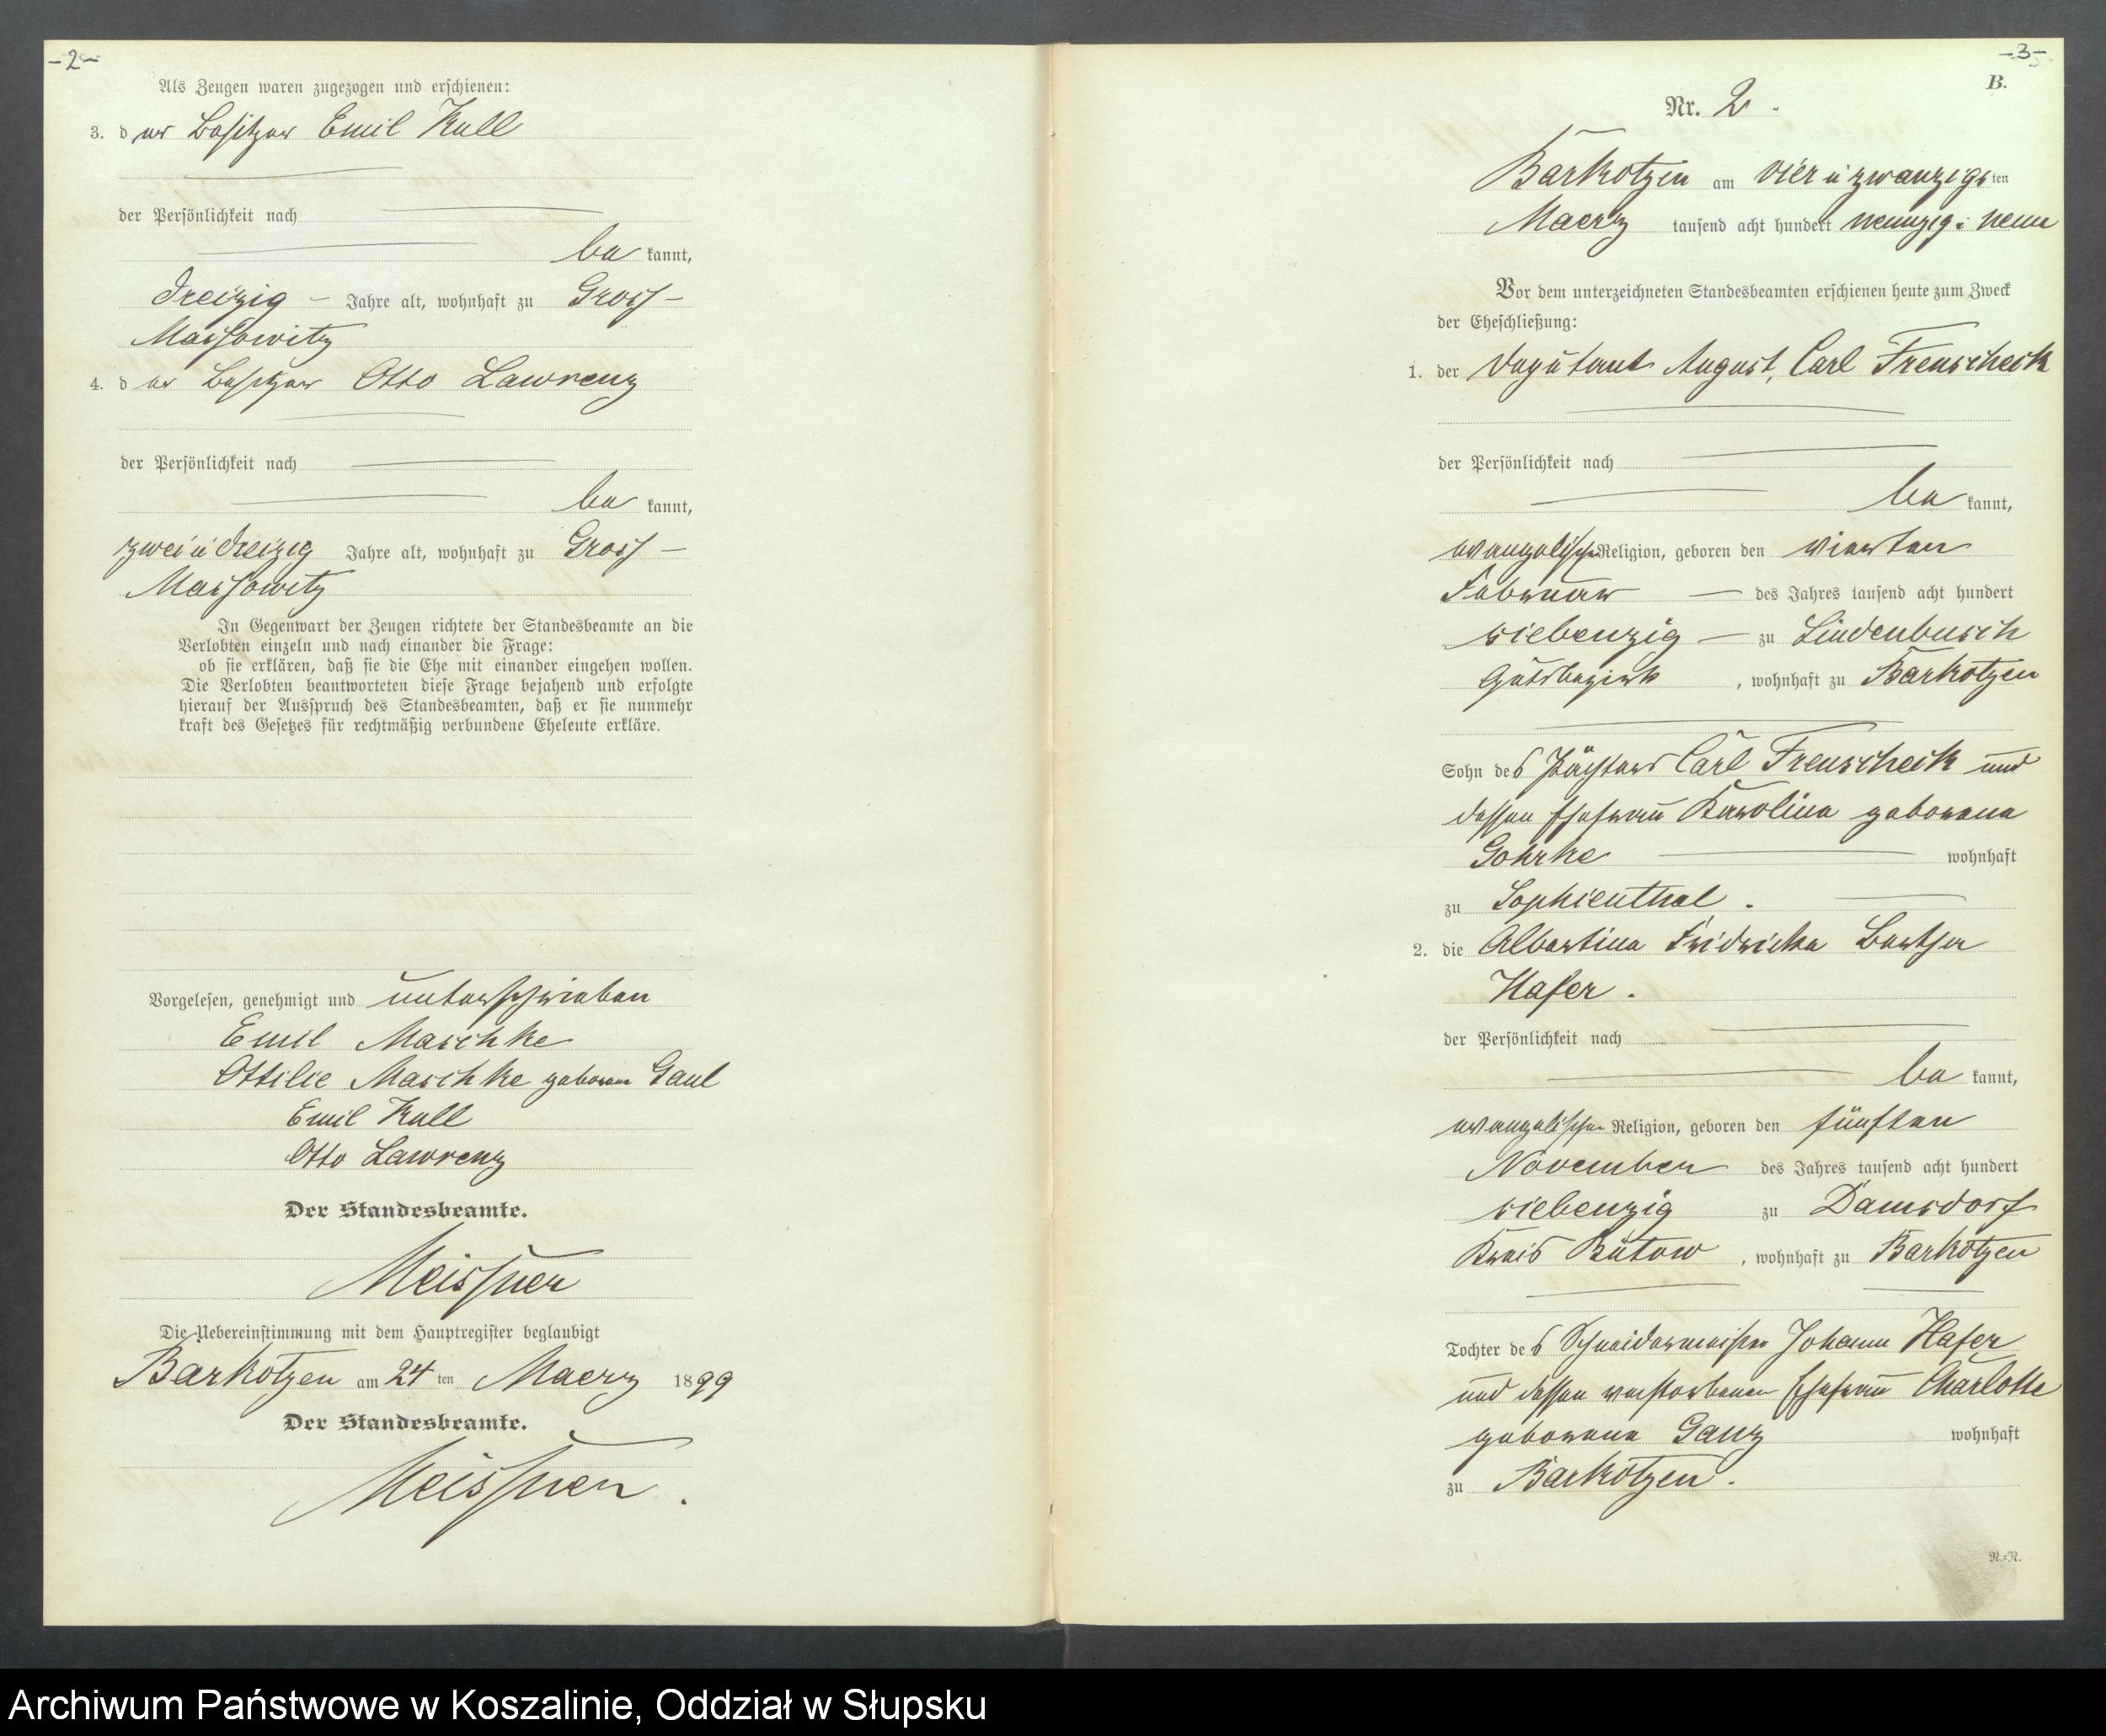 -2-
Als Zeugen waren zugezogen und erschienen:
3. der Besitzer Emil Kull
der Persönlichkeit nach
be kannt,
dreizig – Jahre alt, wohnhaft zu Gross-
Massowitz
4. der Besitzer Otto Lawrenz
der Persönlichkeit nach
be kannt,
zwei u dreizig Jahre alt, wohnhaft zu Gross –
Massowitz
In Gegenwart der Zeugen richtete der Standesbeamte an die
Verlobten einzeln und nach einander die Frage:
ob sie erklären, daß sie die Ehe mit einander eingehen wollen.
Die Verlobten beantworteten diese Frage bejahend und erfolgte
hierauf der Ausspruch des Standesbeamten, daß er sie nunmehr
kraft des Gesetzes für rechtmäßig verbundene Eheleute erkläre.
Vorgelesen, genehmigt und unterschrieben
Emil Maschke
Ottilie Maschke geborene Gaul
Emil Kull
Otto Lawrenz
Der Standesbeamte.
Meissner
Die Uebereinstimmung mit dem Hauptregister beglaubigt
Barkotzen am 24 ten Maerz 1899
Der Standesbeamte.
Meissner.
-3-
B.
Nr. 2.
Barkotzen am vier u zwanzigsten
Maerz tausend acht hundert neunzig u neun
Vor dem unterzeichneten Standesbeamten erschienen heute zum Zweck
der Eheschließung:
1. der Deputant August, Carl Frenscheck
der Persönlichkeit nach
be kannt,
evangelischer Religion, geboren den vierten
Februar – des Jahres tausend acht hundert
siebenzig – zu Lindenbusch
Gutsbezirk, wohnhaft zu Barkotzen
Sohn des Pächters Carl Frenscheck und
dessen Ehefrau Karoline geborene
Gohrke wohnhaft
zu Sophienthal.
2. die Albertine Fridricke Berthe
Hafer.
der Persönlichkeit nach
be kannt,
evangelischer Religion, geboren den fünften
November des Jahres tausend acht hundert
siebenzig zu Damsdorf
Kreis Bütow, wohnhaft zu Barkotzen
Tochter des Schneidermeister Johann Hafer
und dessen verstorbenen Ehefrau Charlotte
geborene Ganz wohnhaft
zu Barkotzen.
R.=N.
Archiwum Państwowe w Koszalinie, Oddział w Słupsku